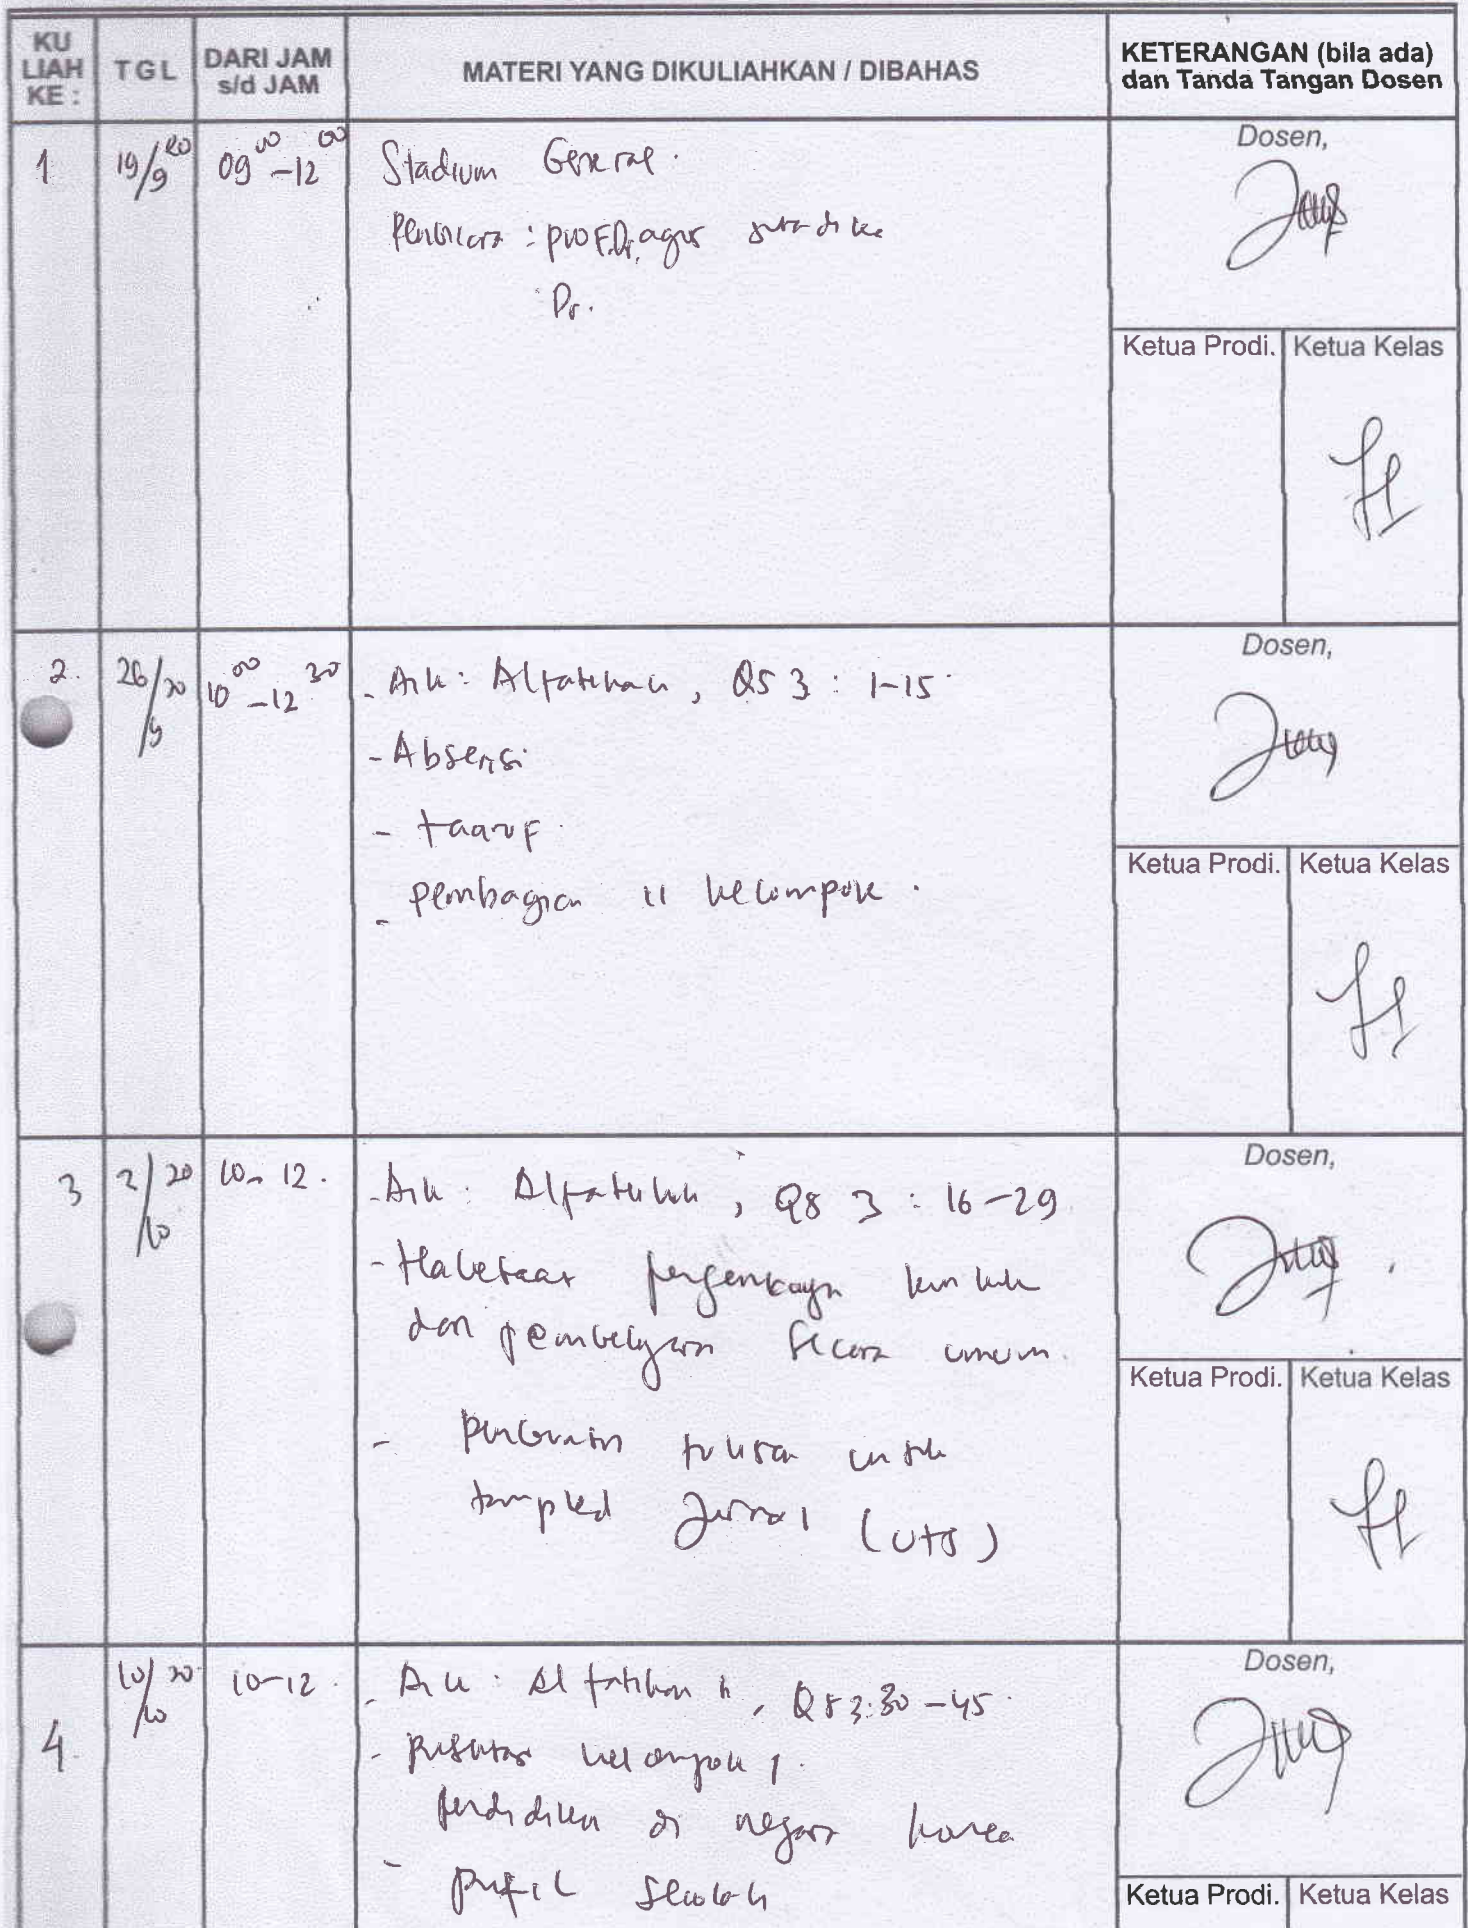 KU LIAH KE :
TGL
DARI JAM s/d JAM
MATERI YANG DIKULIAHKAN / DIBAHAS
KETERANGAN (bila ada) dan Tanda Tangan Dosen
1 19/9 20 09 00 - 12 00 Stadium General.
: prof. Dr. agus
Dr.
Dosen,
Ketua Prodi. Ketua Kelas
2. 26/9 20 10 00 - 12 30 - : Alfatihah, QS 3 : 1-15
- Absensi
- taaruf
- pembagian 11 kelompok.
Dosen,
Ketua Prodi. Ketua Kelas
3 3/10 20 10 - 12. - : Alfatihah, QS 3 : 16-29
-
dan secara umum.
- tulisan untuk
Jurnal (UTS)
Dosen,
Ketua Prodi. Ketua Kelas
4. 10/10 20 10-12. - : Al fatihah, QS 3:30-45
- kelompok 1.
di negara korea
- profil sekolah
Dosen,
Ketua Prodi. Ketua Kelas